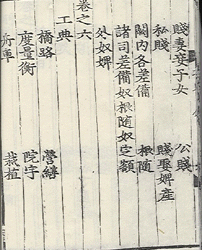 賤妻妾子女 公賤
私賤 賤娶婢産
闕內各差備 根隨
諸司差備奴根隨奴定額
外奴婢
卷之六
工典
橋路 營繕
度量衡 院宇
舟車 栽植